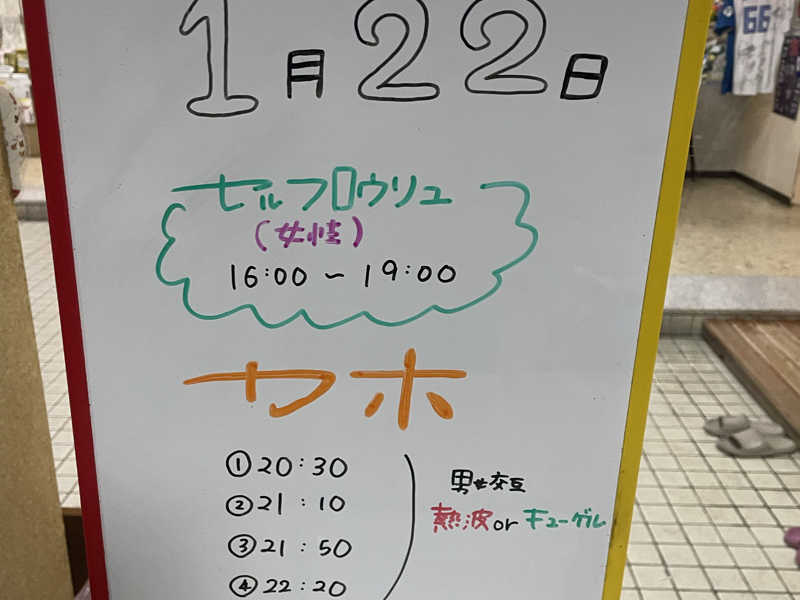 1月22日
セルフロウリュ
(女性)
16:00 ~ 19:00
カホ
① 20:30
② 21:10
③ 21:50
④ 22:20
男女交互
熱波orキューゲル
66